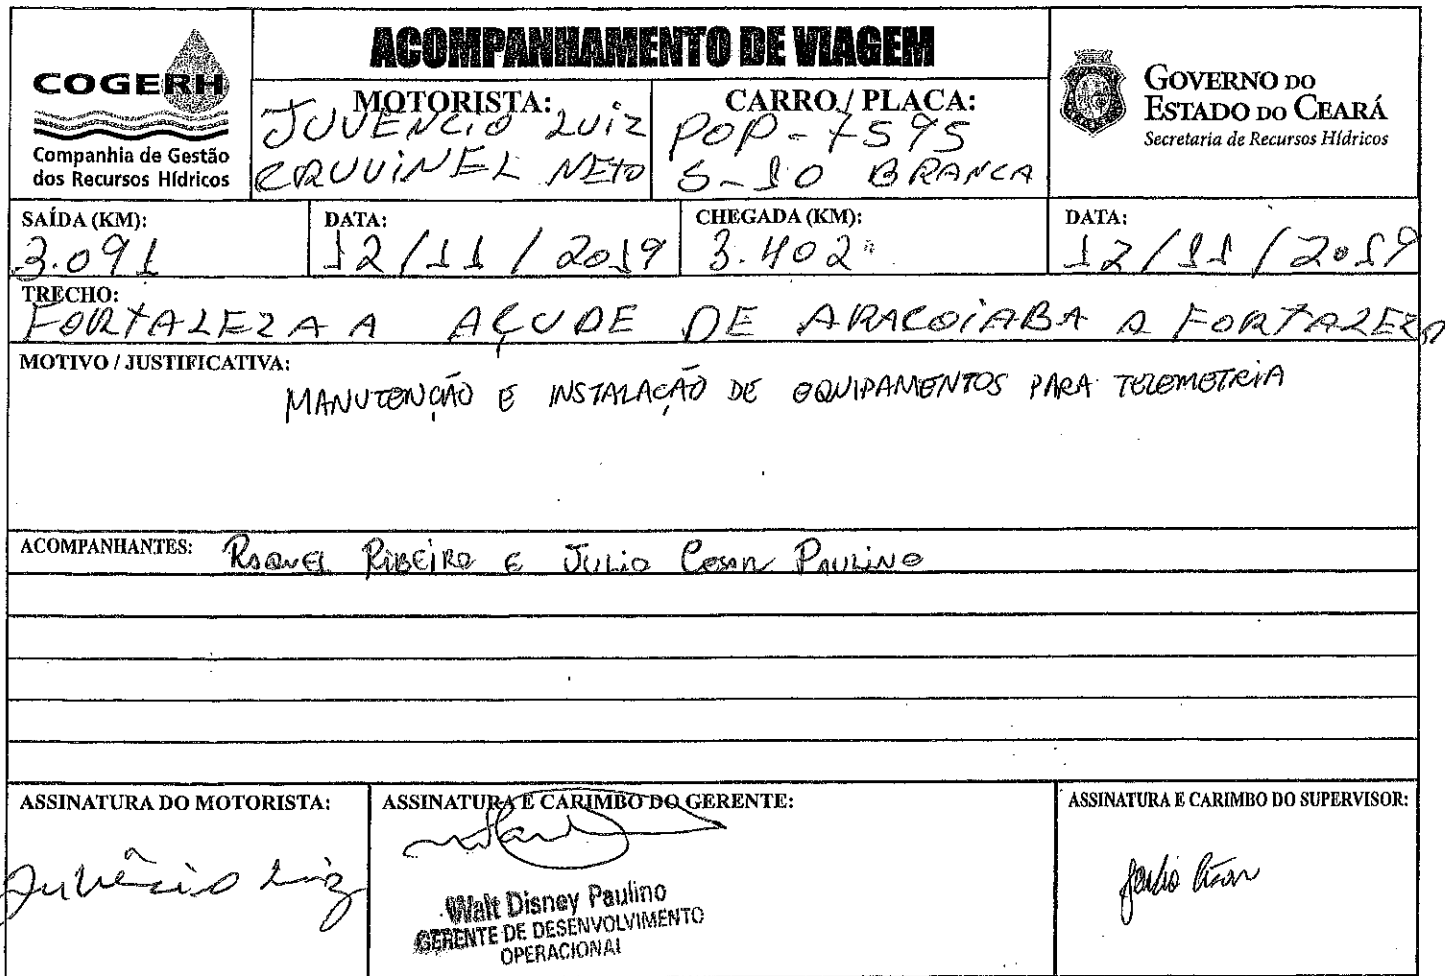 COGERH
Companhia de Gestão
dos Recursos Hídricos
ACOMPANHAMENTO DE VIAGEM
MOTORISTA:
JUVENCIO LUIZ
NETO
CARRO / PLACA:
POP-7595
S-10 BRANCA
GOVERNO DO
ESTADO DO CEARÁ
Secretaria de Recursos Hídricos
SAÍDA (KM):
3.091
DATA:
12/11/2019
CHEGADA (KM):
3.402
DATA:
12/11/2019
TRECHO:
FORTALEZA A AÇUDE DE ARACOIABA A FORTALEZA
MOTIVO / JUSTIFICATIVA:
MANUTENÇÃO E INSTALAÇÃO DE EQUIPAMENTOS PARA TELEMETRIA
ACOMPANHANTES: RAQUEL RIBEIRO E JULIO CESAR PAULINO
ASSINATURA DO MOTORISTA:
Juvêncio Luiz
ASSINATURA E CARIMBO DO GERENTE:
Walt Disney Paulino
GERENTE DE DESENVOLVIMENTO
OPERACIONAL
ASSINATURA E CARIMBO DO SUPERVISOR:
Julio César